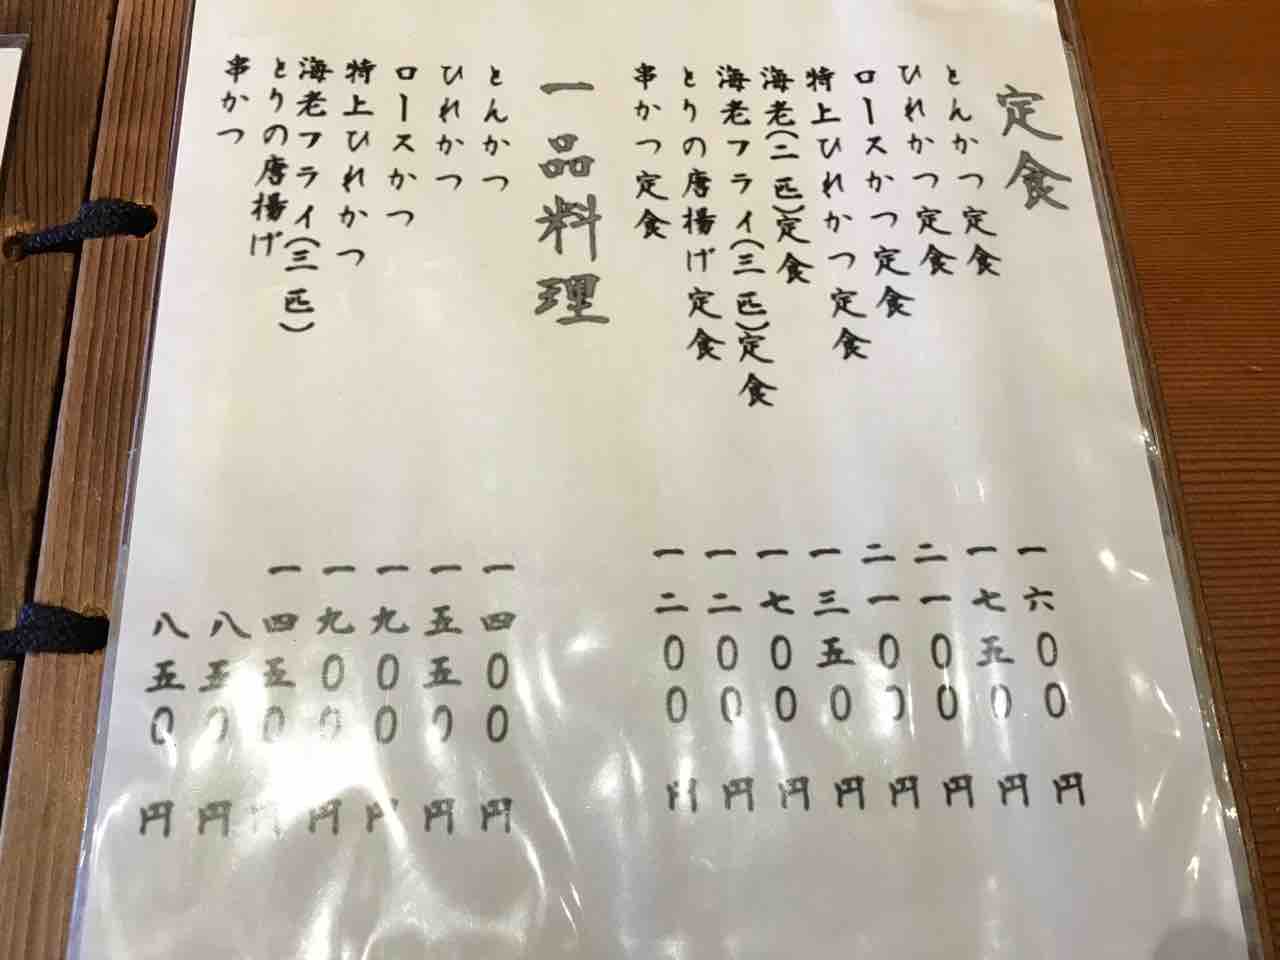 定食
とんかつ定食 一六00円
ひれかつ定食 一七五0円
ロースかつ定食 二一00円
特上ひれかつ定食 二一00円
海老(二匹)定食 一三五0円
海老フライ(三匹)定食 一七00円
とりの唐揚げ定食 一二00円
串かつ定食 一二00円
一品料理
とんかつ 一四00円
ひれかつ 一五五0円
ロースかつ 一九00円
特上ひれかつ 一九00円
海老フライ(三匹) 一四五0円
とりの唐揚げ 八五0円
串かつ 八五0円